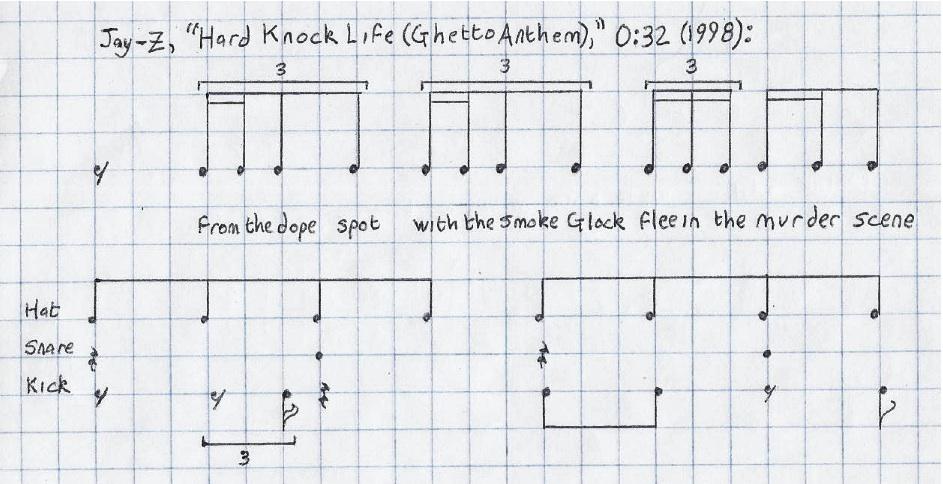 Jay-Z, "Hard Knock Life (Ghetto Anthem)," 0:32 (1998):
3 3 3
from the dope spot with the smoke Glock fleein the murder scene
Hat
Snare
Kick
3